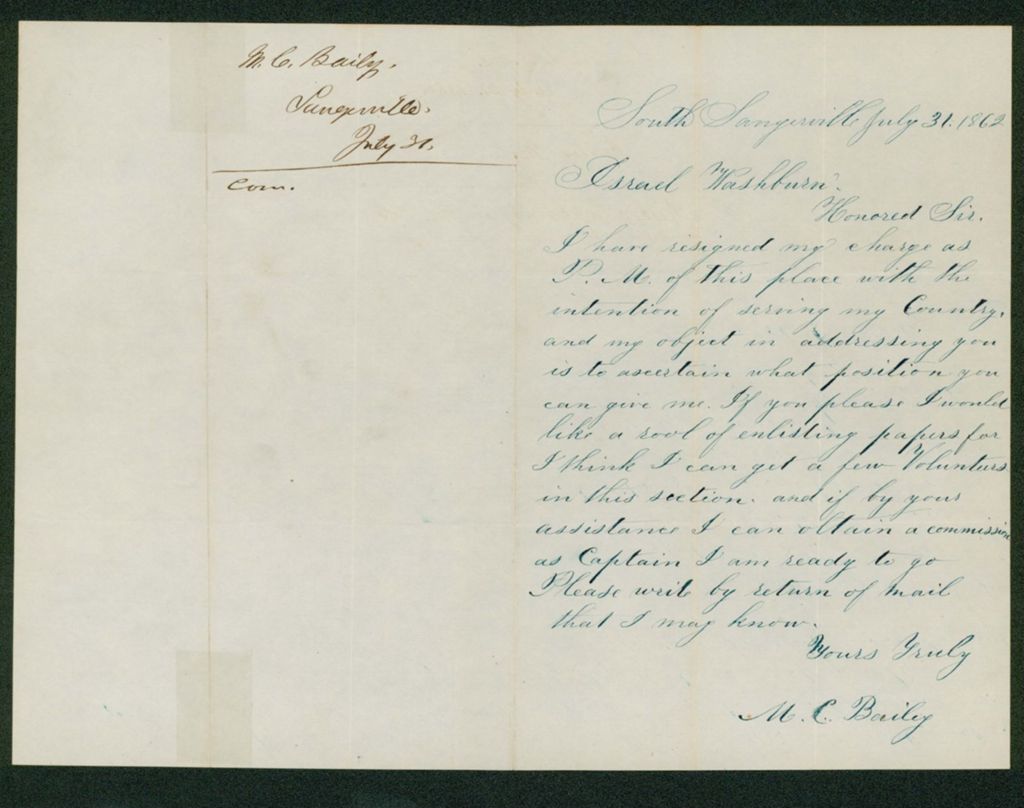 M. C. Baily,
Sangerville.
July 31.
Com.
South Sangerville July 31. 1862
Israel Washburn.
Honored Sir.
I have resigned my charge as
P. M. of this place with the
intention of serving my Country,
and my object in addressing you
is to ascertain what position you
can give me. If you please I would
like a rool of enlisting papers for
I think I can get a few Volunturs
in this section. and if by your
assistance I can obtain a commission
as Captain I am ready to go
Please write by return of mail
that I may know.
Yours Truly
M. C. Bailey